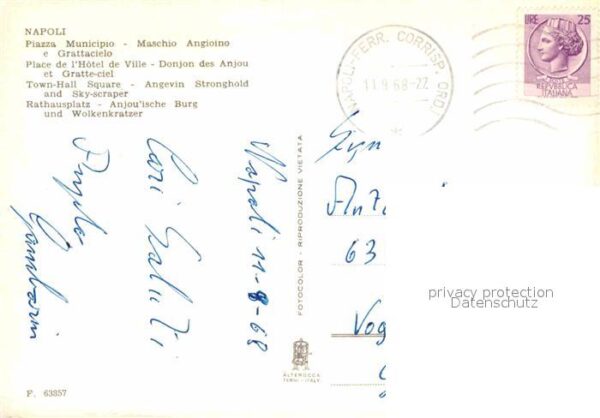 NAPOLI
Piazza Municipio - Maschio Angioino
e Grattacielo
Place de l'Hôtel de Ville - Donjon des Anjou
et Gratte-ciel
Town-Hall Square - Angevin Stronghold
and Sky-scraper
Rathausplatz - Anjou'ische Burg
und Wolkenkratzer
NAPOLI-FERR. CORRISP. ORD.
11.9.68-22
LIRE 25
REPVBBLICA
ITALIANA
Napoli 11-9-68
Cari Saluti
63
Vog
privacy protection
Datenschutz
FOTOCOLOR - RIPRODUZIONE VIETATA
ALTEROCCA
TERNI - ITALY
F. 63857